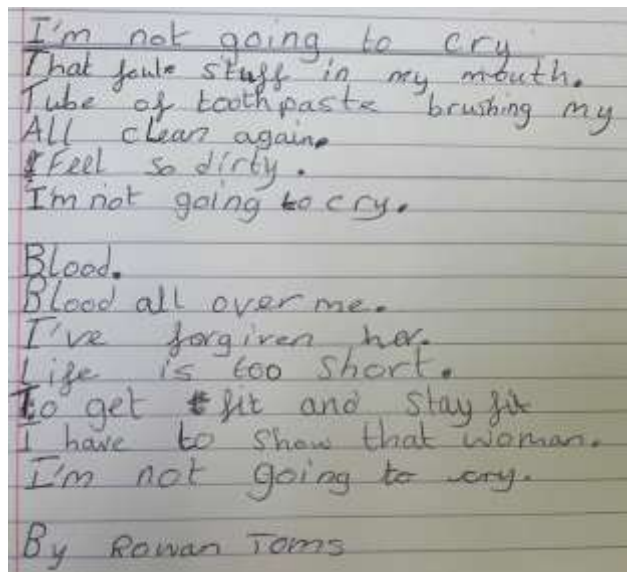 I'm not going to cry
That foule stuff in my mouth.
Tube of toothpaste brushing my
All clean again.
Feel so dirty.
I'm not going to cry.
Blood.
Blood all over me.
I've forgiven her.
Life is too short.
To get fit and stay fit
I have to show that woman.
I'm not going to cry.
By Rowan Toms